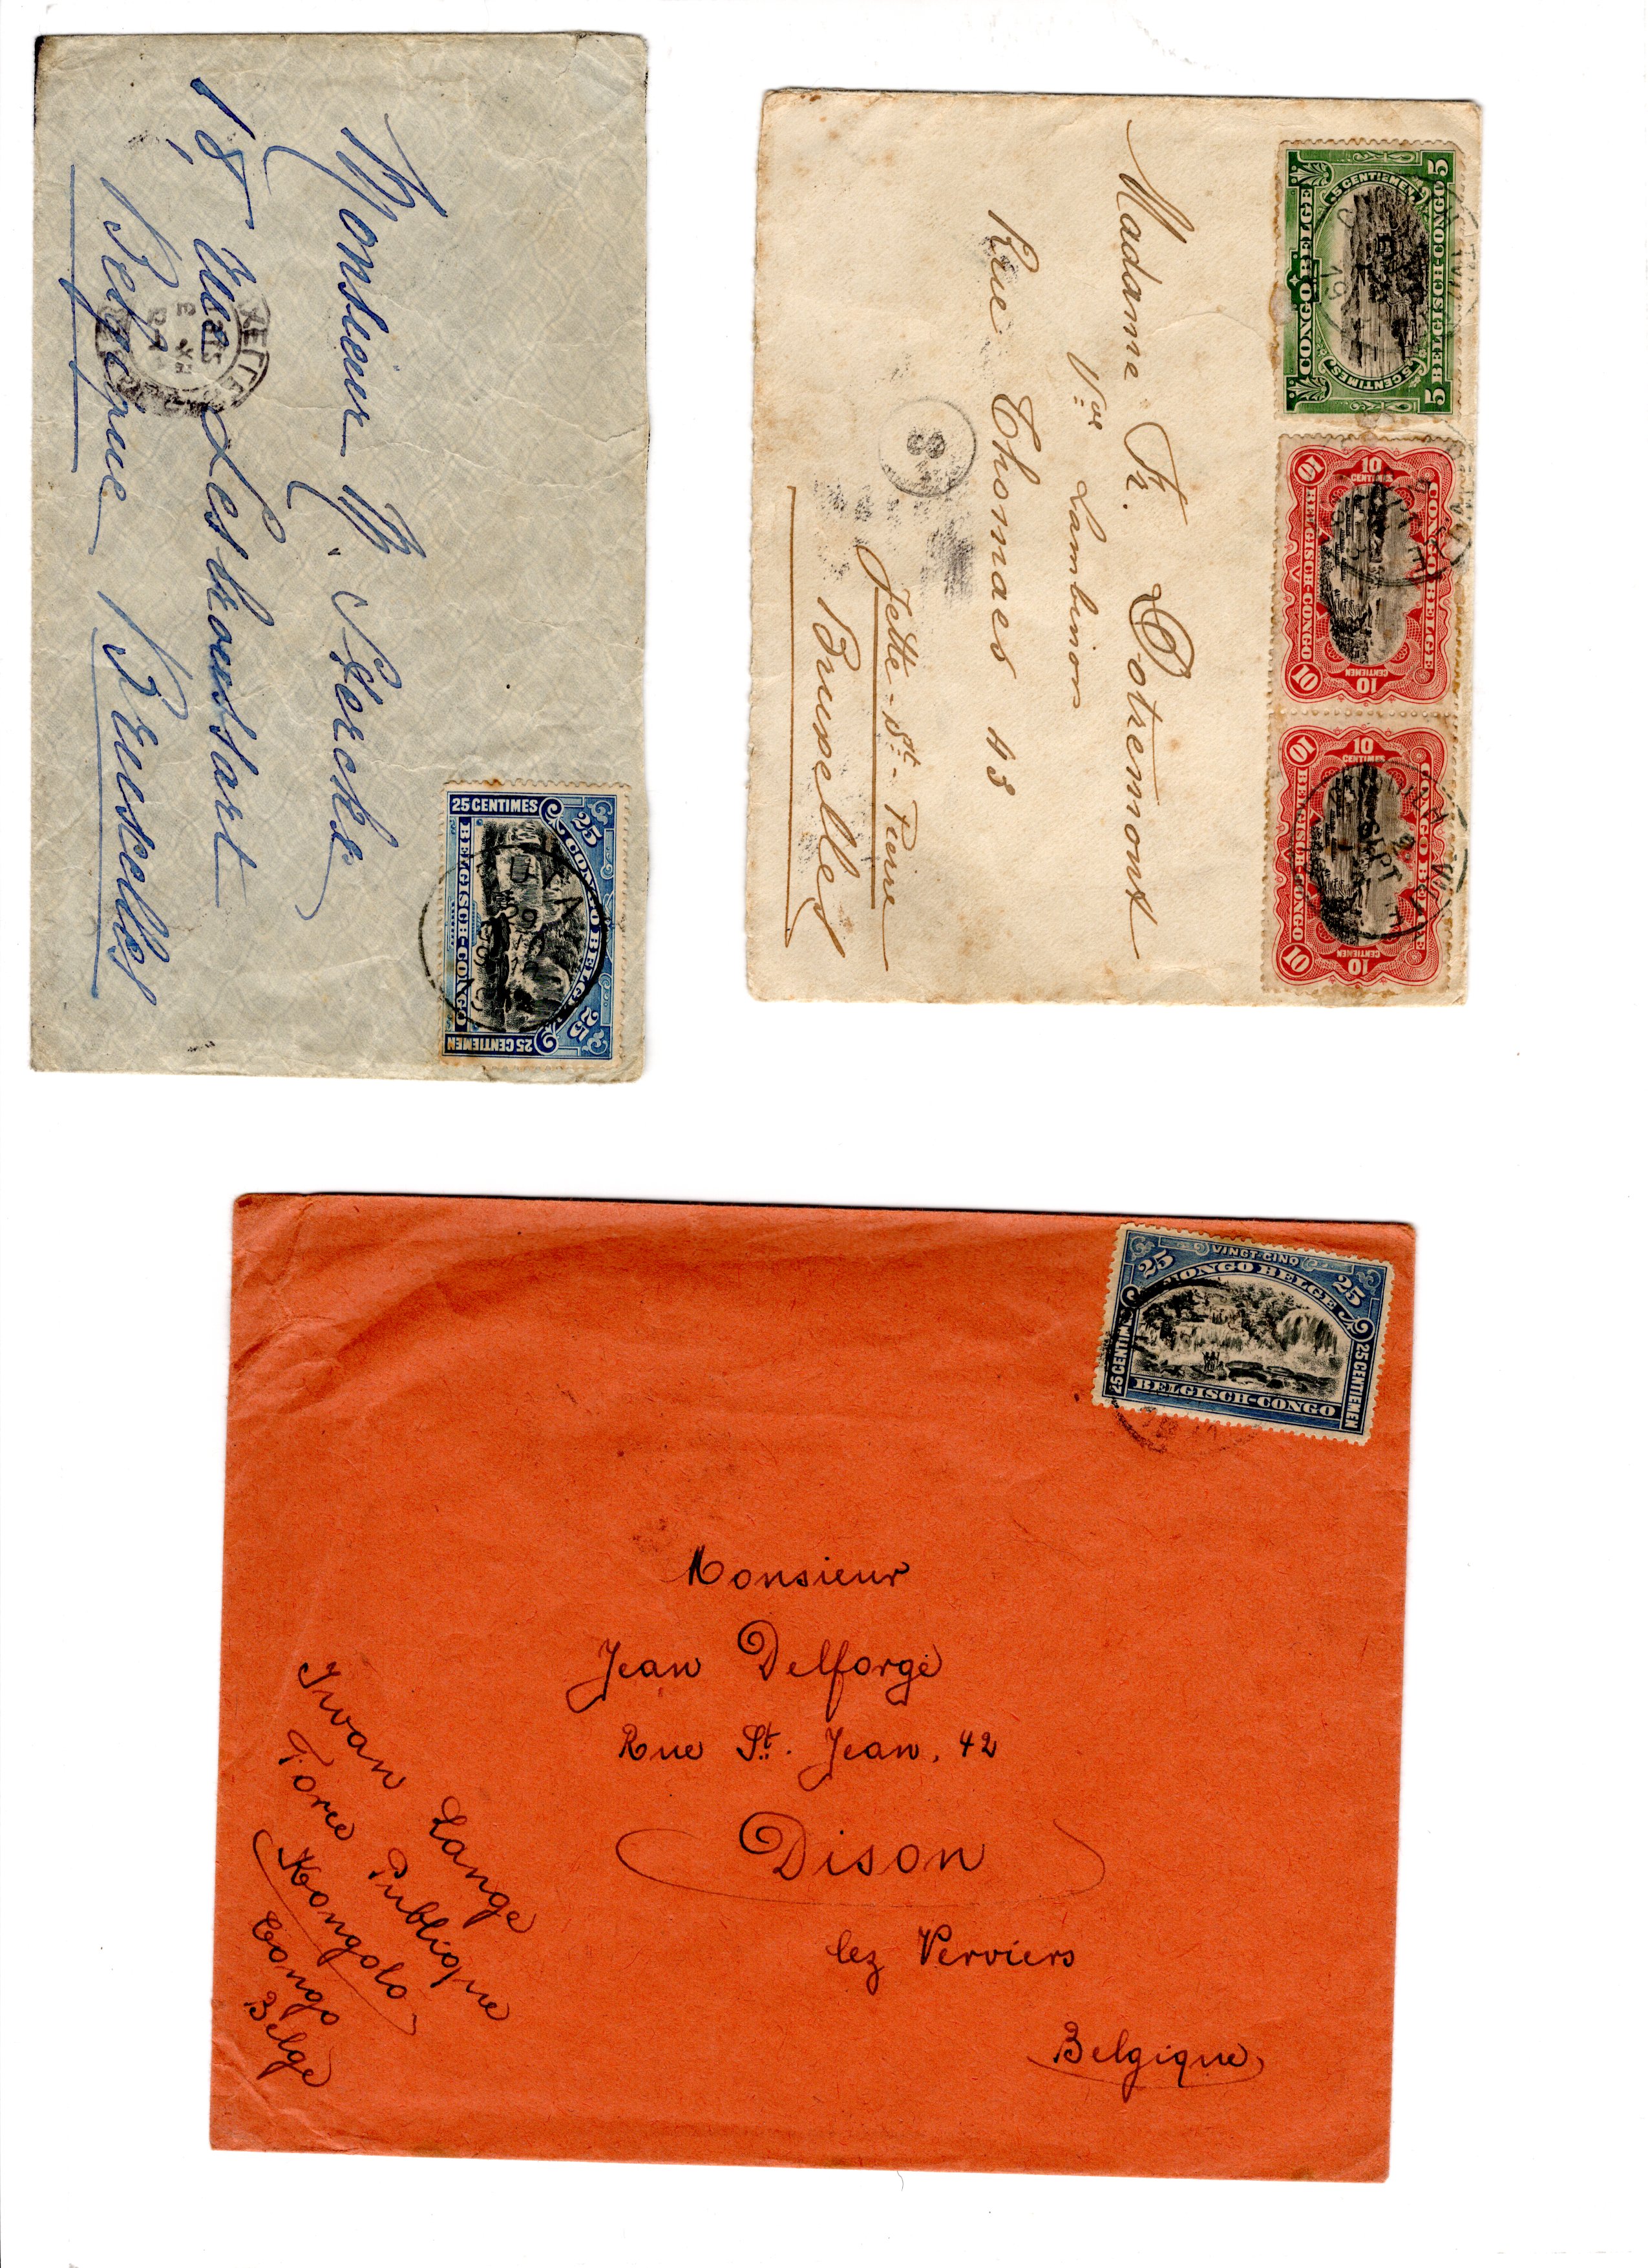 Monsieur
Belgique
Bruxelles
25 CENTIMES
25
CONGO BELGE
25
25 CENTIEMEN
BELGISCH-CONGO
5
CONGO BELGE
5 CENTIEMEN
5 CENTIMES
BELGISCH-CONGO
5
10
CENTIMES
10
CONGO BELGE
BELGISCH-CONGO
10
10
CENTIEMEN
10
CENTIMES
10
CONGO BELGE
BELGISCH-CONGO
10
10
CENTIEMEN
SEPT
Madame Fr. Dotremont
Vve Lambinon
Rue Thomaes 13
Jette-St-Pierre
Bruxelles
VINGT-CINQ
25
CONGO BELGE
25
25 CENTIM
25 CENTIEMEN
BELGISCH-CONGO
Monsieur
Jean Delforge
Rue St. Jean, 42
Dison
lez Verviers
Belgique
Ivan Lange
Force Publique
Kongolo
Congo
Belge